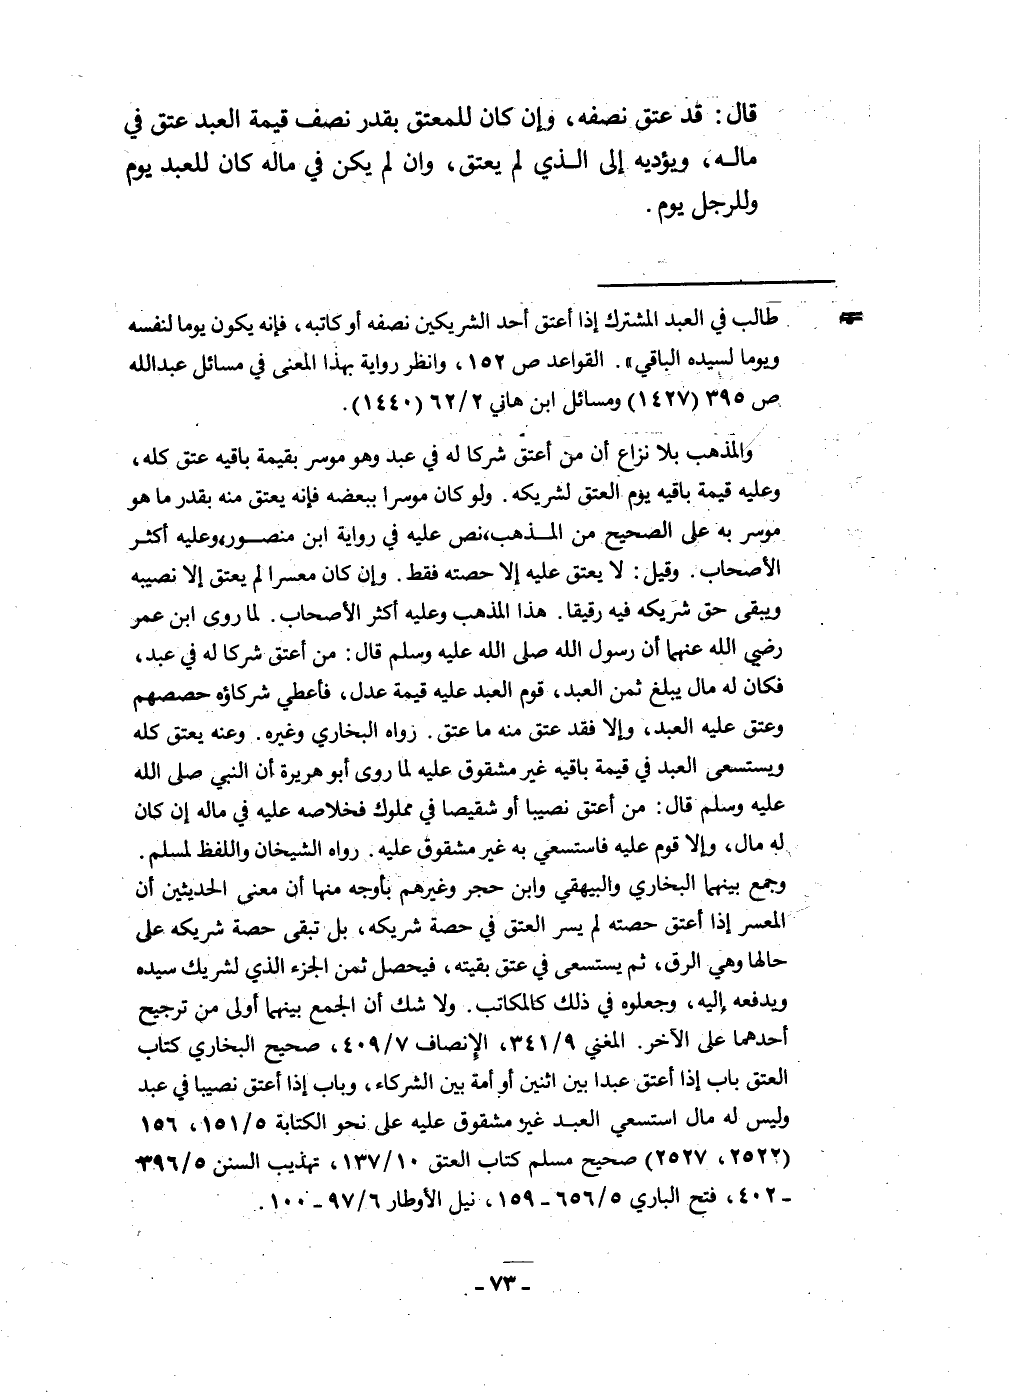 قال: قد عتق نصفه، وإن كان للمعتق بقدر نصف قيمة العبد عتق في
مالـه، ويؤديه إلى الـذي لم يعتق، وان لم يكن في ماله كان للعبد يوم
وللرجل يوم.
= طالب في العبد المشترك إذا أعتق أحد الشريكين نصفه أو كاتبه، فإنه يكون يوما لنفسه
ويوما لسيده الباقي». القواعد ص ١٥٢، وانظر رواية بهذا المعنى في مسائل عبدالله
ص ٣٩٥ (١٤٢٧) ومسائل ابن هاني ٦٢/٢ (١٤٤٠).
والمذهب بلا نزاع أن من أعتق شركا له في عبد وهو موسر بقيمة باقيه عتق كله،
وعليه قيمة باقيه يوم العتق لشريكه. ولو كان موسرا ببعضه فإنه يعتق منه بقدر ما هو
موسر به على الصحيح من المـذهب،نص عليه في رواية ابن منصـور،وعليه أكثـر
الأصحاب. وقيل: لا يعتق عليه إلا حصته فقط. وإن كان معسرا لم يعتق إلا نصيبه
ويبقى حق شريكه فيه رقيقا. هذا المذهب وعليه أكثر الأصحاب. لما روى ابن عمر
رضي الله عنهما أن رسول الله صلى الله عليه وسلم قال: من أعتق شركا له في عبد،
فكان له مال يبلغ ثمن العبد، قوم العبد عليه قيمة عدل، فأعطي شركاؤه حصصهم
وعتق عليه العبد، وإلا فقد عتق منه ما عتق. رواه البخاري وغيره. وعنه يعتق كله
ويستسعى العبد في قيمة باقيه غير مشقوق عليه لما روى أبو هريرة أن النبي صلى الله
عليه وسلم قال: من أعتق نصيبا أو شقيصا في مملوك فخلاصه عليه في ماله إن كان
له مال، وإلا قوم عليه فاستسعي به غير مشقوق عليه. رواه الشيخان واللفظ لمسلم.
وجمع بينهما البخاري والبيهقي وابن حجر وغيرهم بأوجه منها أن معنى الحديثين أن
المعسر إذا أعتق حصته لم يسر العتق في حصة شريكه، بل تبقى حصة شريكه على
حالها وهي الرق، ثم يستسعى في عتق بقيته، فيحصل ثمن الجزء الذي لشريك سيده
ويدفعه إليه، وجعلوه في ذلك كالمكاتب. ولا شك أن الجمع بينهما أولى من ترجيح
أحدهما على الآخر. المغني ٣٤١/٩، الإنصاف ٤٠٩/٧، صحيح البخاري كتاب
العتق باب إذا أعتق عبدا بين اثنين أو أمة بين الشركاء، وباب إذا أعتق نصيبا في عبد
وليس له مال استسعي العبـد غير مشقوق عليه على نحو الكتابة ١٥١/٥، ١٥٦
(٢٥٢٢، ٢٥٢٧) صحيح مسلم كتاب العتق ١٣٧/١٠، تهذيب السنن ٣٩٦/٥
ـ ٤٠٢، فتح الباري ٦٥٦/٥ ـ ١٥٩، نيل الأوطار ٩٧/٦ ـ ١٠٠.
ـ ٧٣ ـ